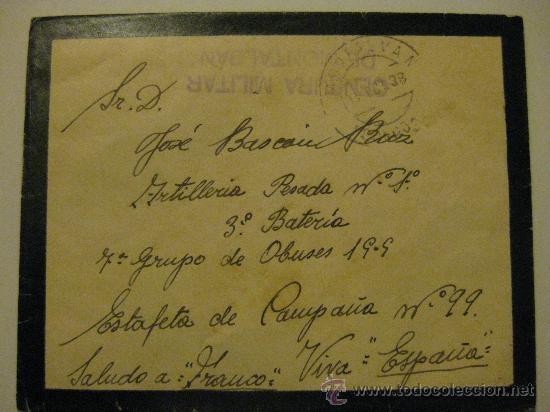 CENSURA MILITAR
38
Sr. D.
José Bascón Ruz
Artilleria Pesada Nº 1º
3º Batería
7º Grupo de Obuses 155
Estafeta de Campaña Nº 99.
Saludo a "Franco" Viva "España"
todocoleccion
www.todocoleccion.net